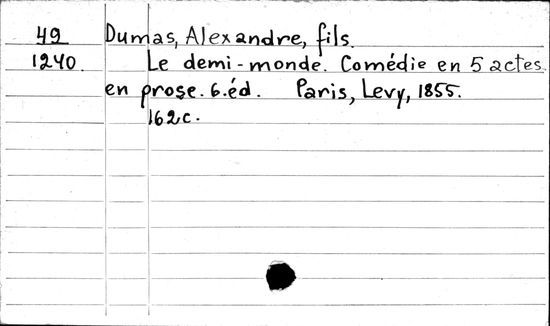 49 Dumas, Alexandre, fils.
1240. Le demi-monde. Comédie en 5 actes
en prose. 6.éd. Paris, Levy, 1855.
162c.